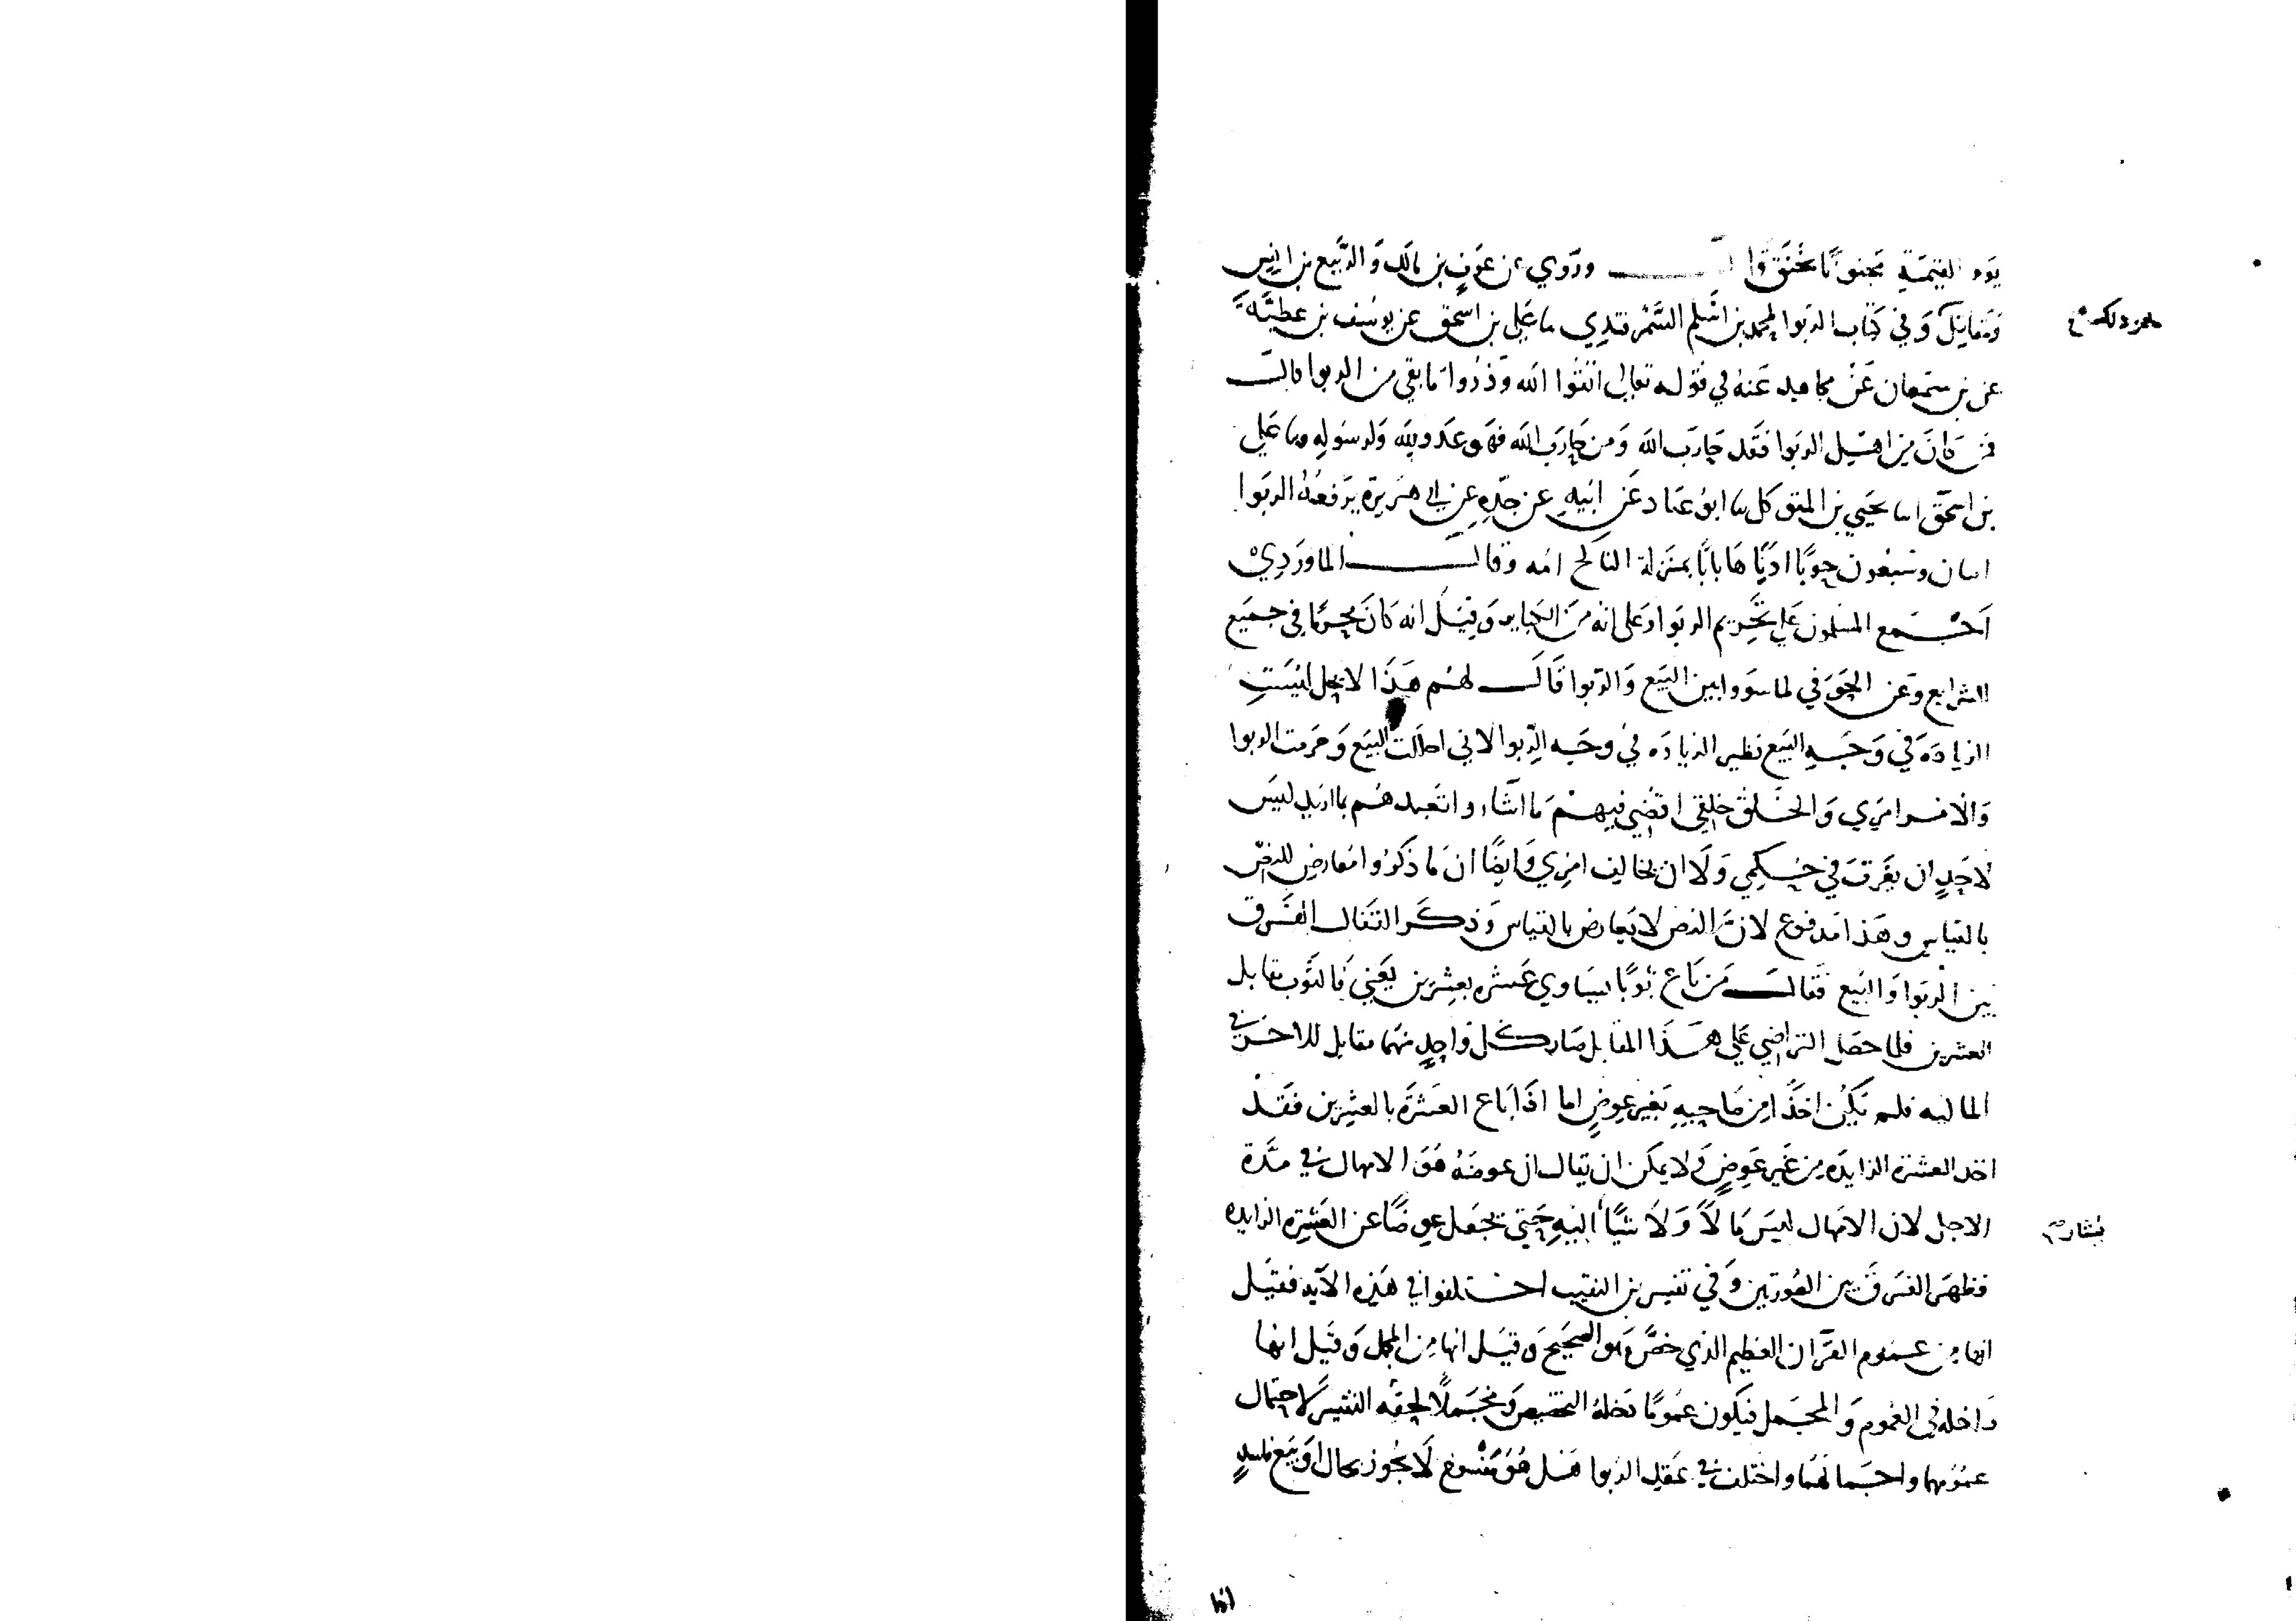 يوم القيمة مجنونا يخنق قال وروي عن عوف بن مالك والربيع بن انس
ومقاتل وفي كتاب الربوا لمحمد بن اسلم السمرقندي ما علي بن اسحق عن يوسف بن عطية
عن بن سمعان عن مجاهد عنه في قوله تعالى اتقوا الله وذروا ما بقي من الربوا قال
فمن كان من اهل الربوا فقد حارب الله ومن حارب الله فهو عدو لله ولرسوله وما علي
بن اسحق انا يحيي بن المتوكل ما ابو عباد عن ابيه عن جده عن ابي هريرة يرفعه الربوا
اثنان وسبعون حوبا ادناها بابا بمنزلة الناكح امه وقال الماوردي
اجمع المسلمون علي تحريم الربوا وعلى انه من الكباير وقيل انه كان محرما في جميع
الشرايع وعن الحوفي لما سووا بين البيع والربوا قال لهم هذا لا يحل ليست
الزيادة في وجه البيع نظير الزيادة في وجه الربوا لاني احللت البيع وحرمت الربوا
والامر امري والخلق خلقي اقضي فيهم ما اشاء واتعبدهم بما اريد ليس
لاحد ان يفرق في حكمي ولا ان يخالف امري وايضا ان ما ذكروا معارض للنص
بالقياس وهذا مدفوع لان النص لا يعارض بالقياس وذكر القفال الفرق
بين الربوا والبيع فقال من باع ثوبا يساوي عشره بعشرين يعني فالثوب مقابل
العشرين فلما حصل التراضي علي هذا المقابل صار كل واحد منهما مقابل للاخر في
الماليه فلم يكن اخذا من صاحبه بغير عوض اما اذا باع العشرة بالعشرين فقد
اخذ العشرة الزايده من غير عوض ولا يمكن ان يقال ان عوضه هو الامهال في مدة
الاجل لان الامهال ليس مالا ولا شيا اليه حتي يجعل عوضا عن العشره الزايده
يشار
فظهر الفرق بين الصورتين وفي تفسير بن النقيب اختلفوا في هذه الآيه فقيل
انها من عموم القرآن العظيم الذي خص وهو الصحيح وقيل انها من المجمل وقيل انها
داخله في العموم والمجمل فيكون عموما دخله التخصيص ومجملا لحقه التفسير لاحتمال
عمومهما واجمالهما واختلف في عقد الربوا هل هو مفسوخ لا يجوز بحال او بيع فاسد